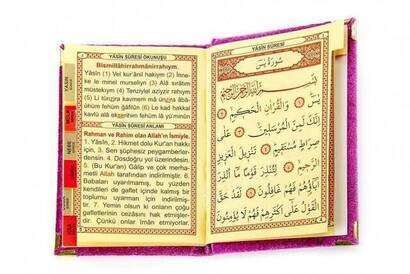 YÂSÎN SÛRESİ OKUNUŞU
Bismillâhirrahmânirrahıym.
Yâsîn (1) Vel kur'ânil hakiym (2) İnne-
ke le minel murseliyn (3) Alâ sırâtın
müstekiym (4) Tenziylel aziyzir rahıym
(5) Li tünzira kavmem mâ ünzira âbâ-
ühüm fehüm ğâfilûn (6) Le kad hakkal
kavlü alâ ekserihim fehüm lâ yü'minûn
YÂSÎN SÛRESİ ANLAMI
Rahman ve Rahim olan Allah'ın İsmiyle.
1. Yâsîn, 2. Hikmet dolu Kur'an hakkı
için, 3. Sen şüphesiz peygamberler-
densin. 4. Dosdoğru yol üzerindesin.
5. (Bu Kur'an) Gâlip ve çok merha-
metli Allah tarafından indirilmiştir. 6.
Babaları uyarılmamış, bu yüzden
kendileri de gaflet içinde kalmış bir
toplumu uyarman için indirilmiş-
tir. 7. Yemin olsun ki onların çoğu
gafletlerinin cezasını hak etmişler-
dir. Çünkü onlar îman etmiyorlar.
YÂSÎN
NEBE
YÂSÎN SÛRESİ
سُورَةُ يٰسٓ
بِسْمِ اللّٰهِ الرَّحْمٰنِ الرَّحِيمِ
يٰسٓ ۝ وَالْقُرْاٰنِ الْحَكِيمِ ۝
اِنَّكَ لَمِنَ الْمُرْسَلِينَ ۝ عَلٰى
صِرَاطٍ مُسْتَقِيمٍ ۝ تَنْزِيلَ الْعَزِيزِ
الرَّحِيمِ ۝ لِتُنْذِرَ قَوْمًا مَٓا اُنْذِرَ
اٰبَٓاؤُهُمْ فَهُمْ غَافِلُونَ ۝ لَقَدْ حَقَّ
الْقَوْلُ عَلٰٓى اَكْثَرِهِمْ فَهُمْ لَا يُؤْمِنُونَ